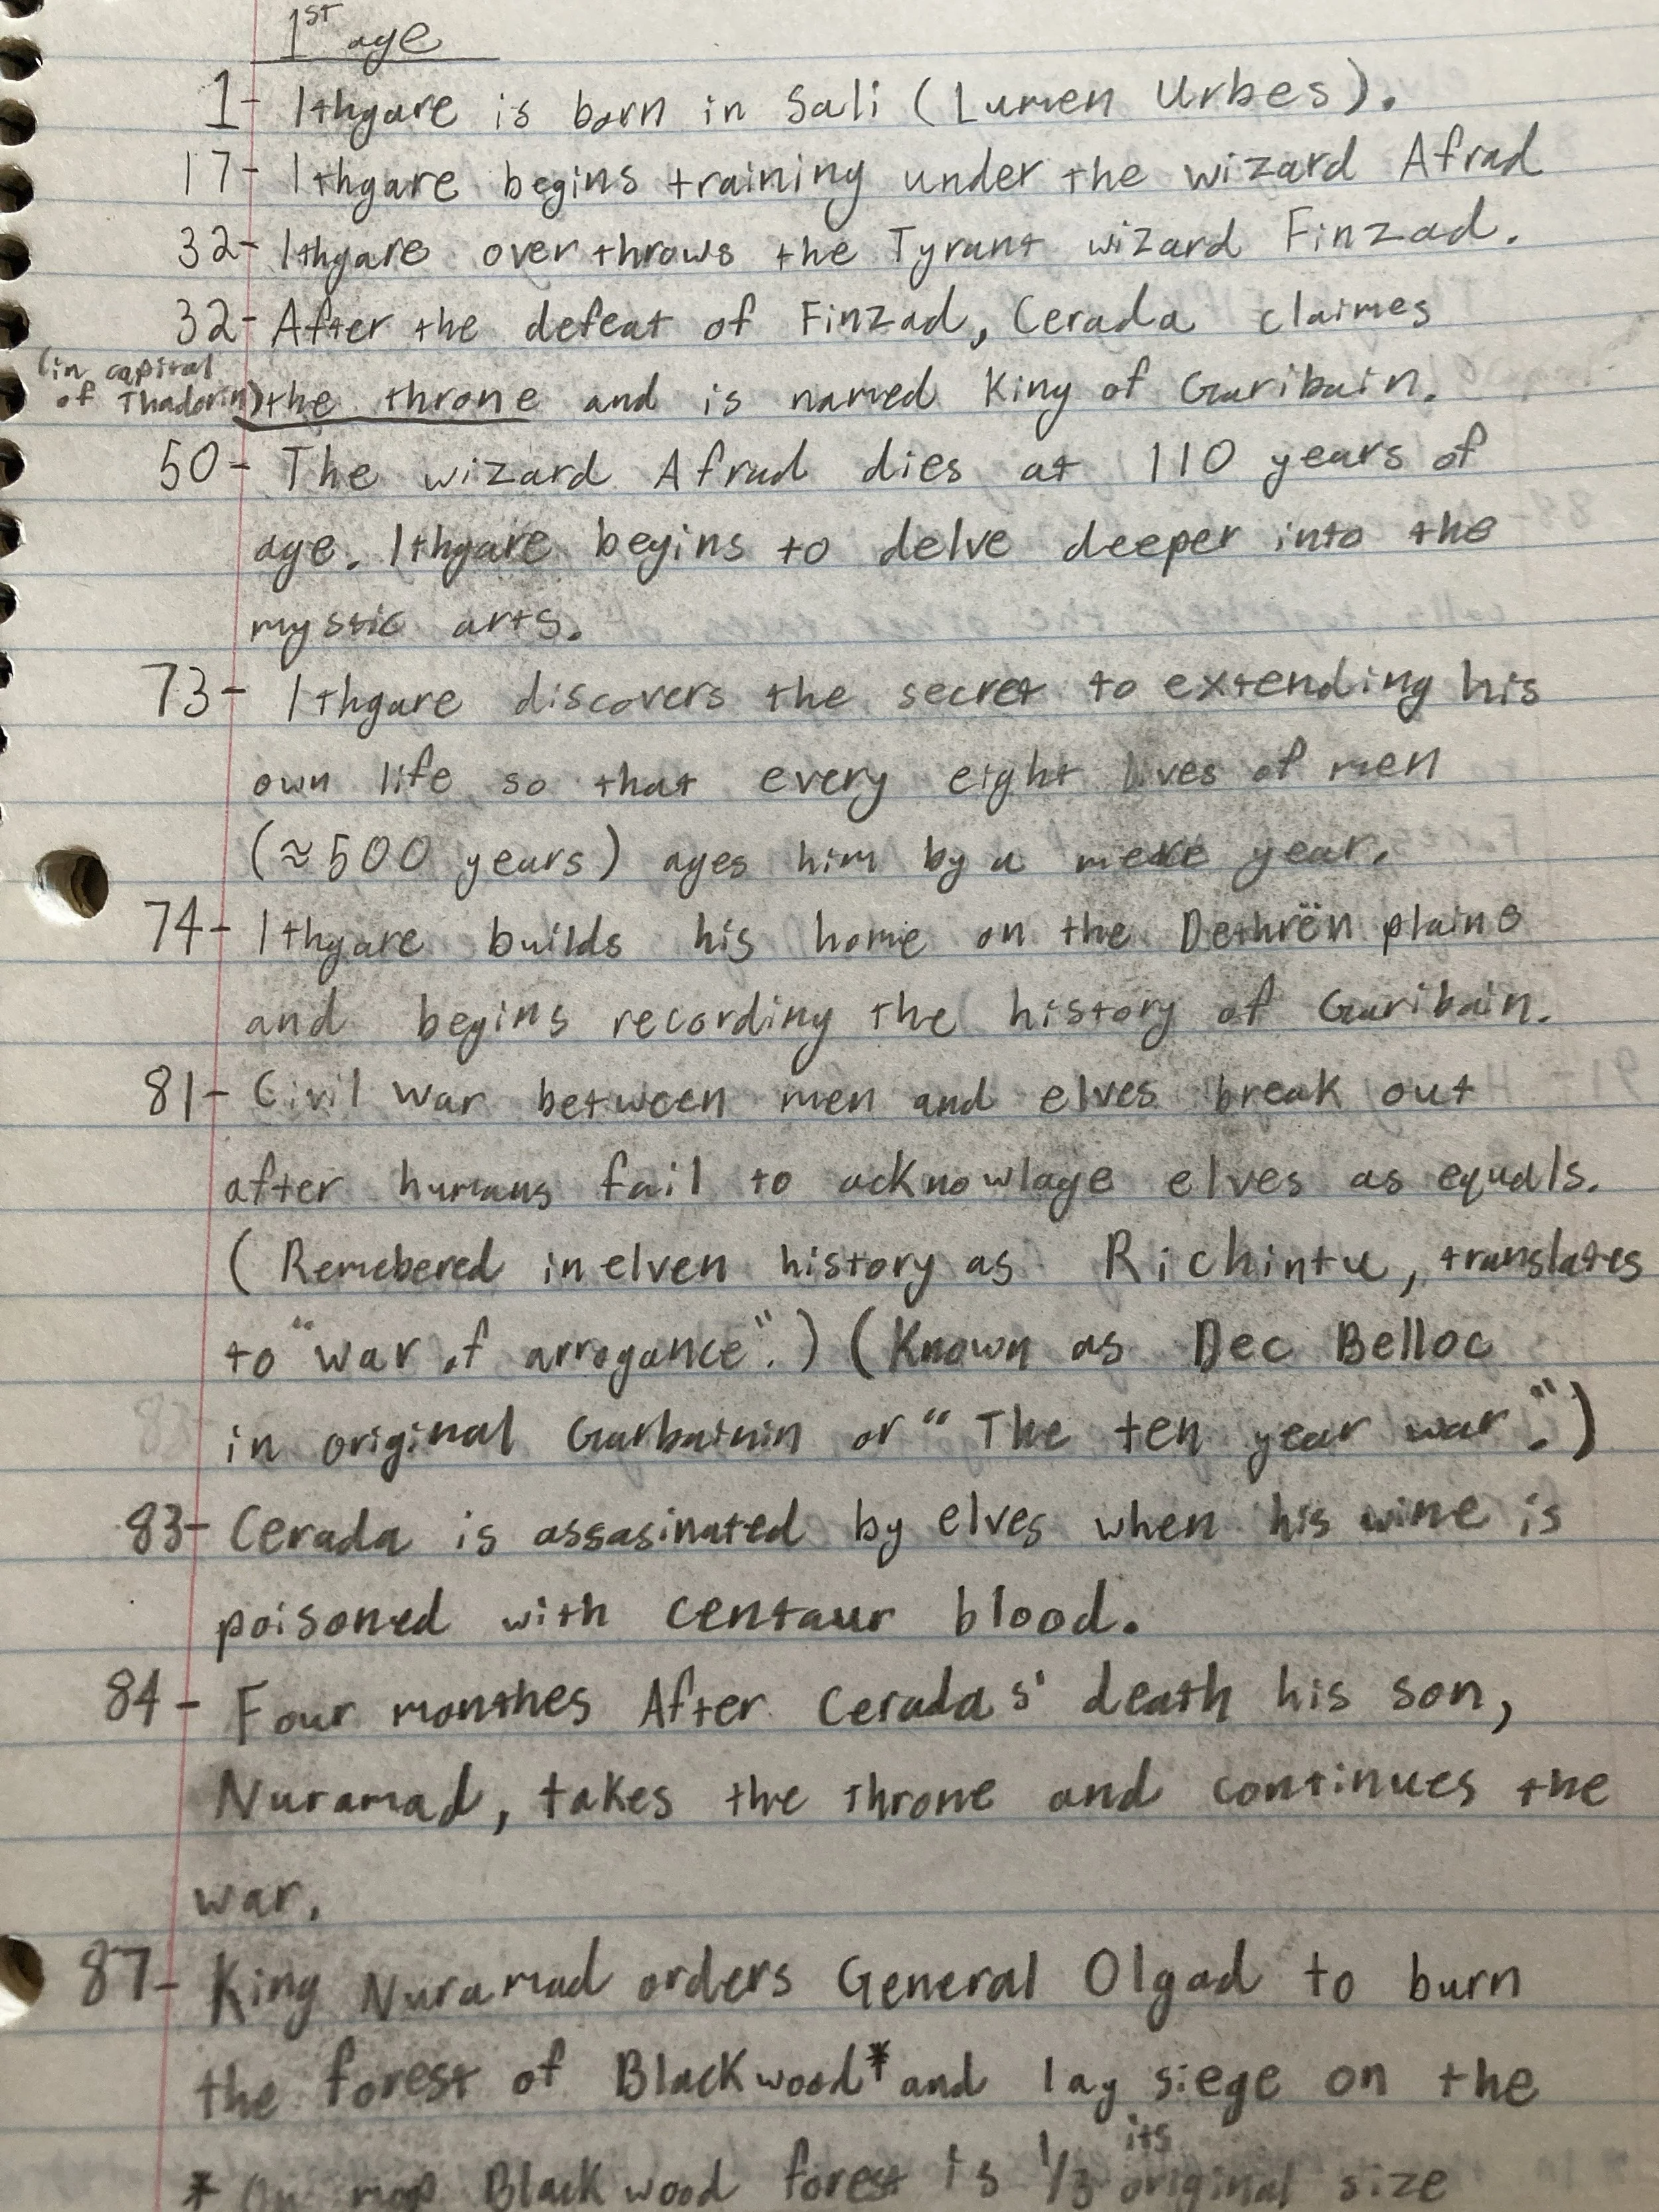 1st age
1- Ithgare is born in Sali (Lumen Urbes).
17- Ithgare begins training under the wizard Afrad
32- Ithgare overthrows the Tyrant wizard Finzad.
32- After the defeat of Finzad, Cerada claimes
(in capital
of Thadorin) the throne and is named King of Garibain.
50- The wizard Afrad dies at 110 years of
age. Ithgare begins to delve deeper into the
mystic arts.
73- Ithgare discovers the secret to extending his
own life so that every eight lives of men
(≈500 years) ages him by a mere year.
74- Ithgare builds his home on the Dethrën plains
and begins recording the history of Garibain.
81- Civil war between men and elves break out
after humans fail to acknowlage elves as equals.
(Remebered in elven history as Richintu, translates
to "war of arrogance".) (Known as Dec Belloc
in original Garbainin or "The ten year war".)
83- Cerada is assasinated by elves when his wine is
poisoned with centaur blood.
84- Four monthes After Ceradas' death his son,
Nuramad, takes the throne and continues the
war.
87- King Nuramad orders General Olgad to burn
the forest of Blackwood* and lay siege on the
* On map Blackwood forest is 1/3 its original size